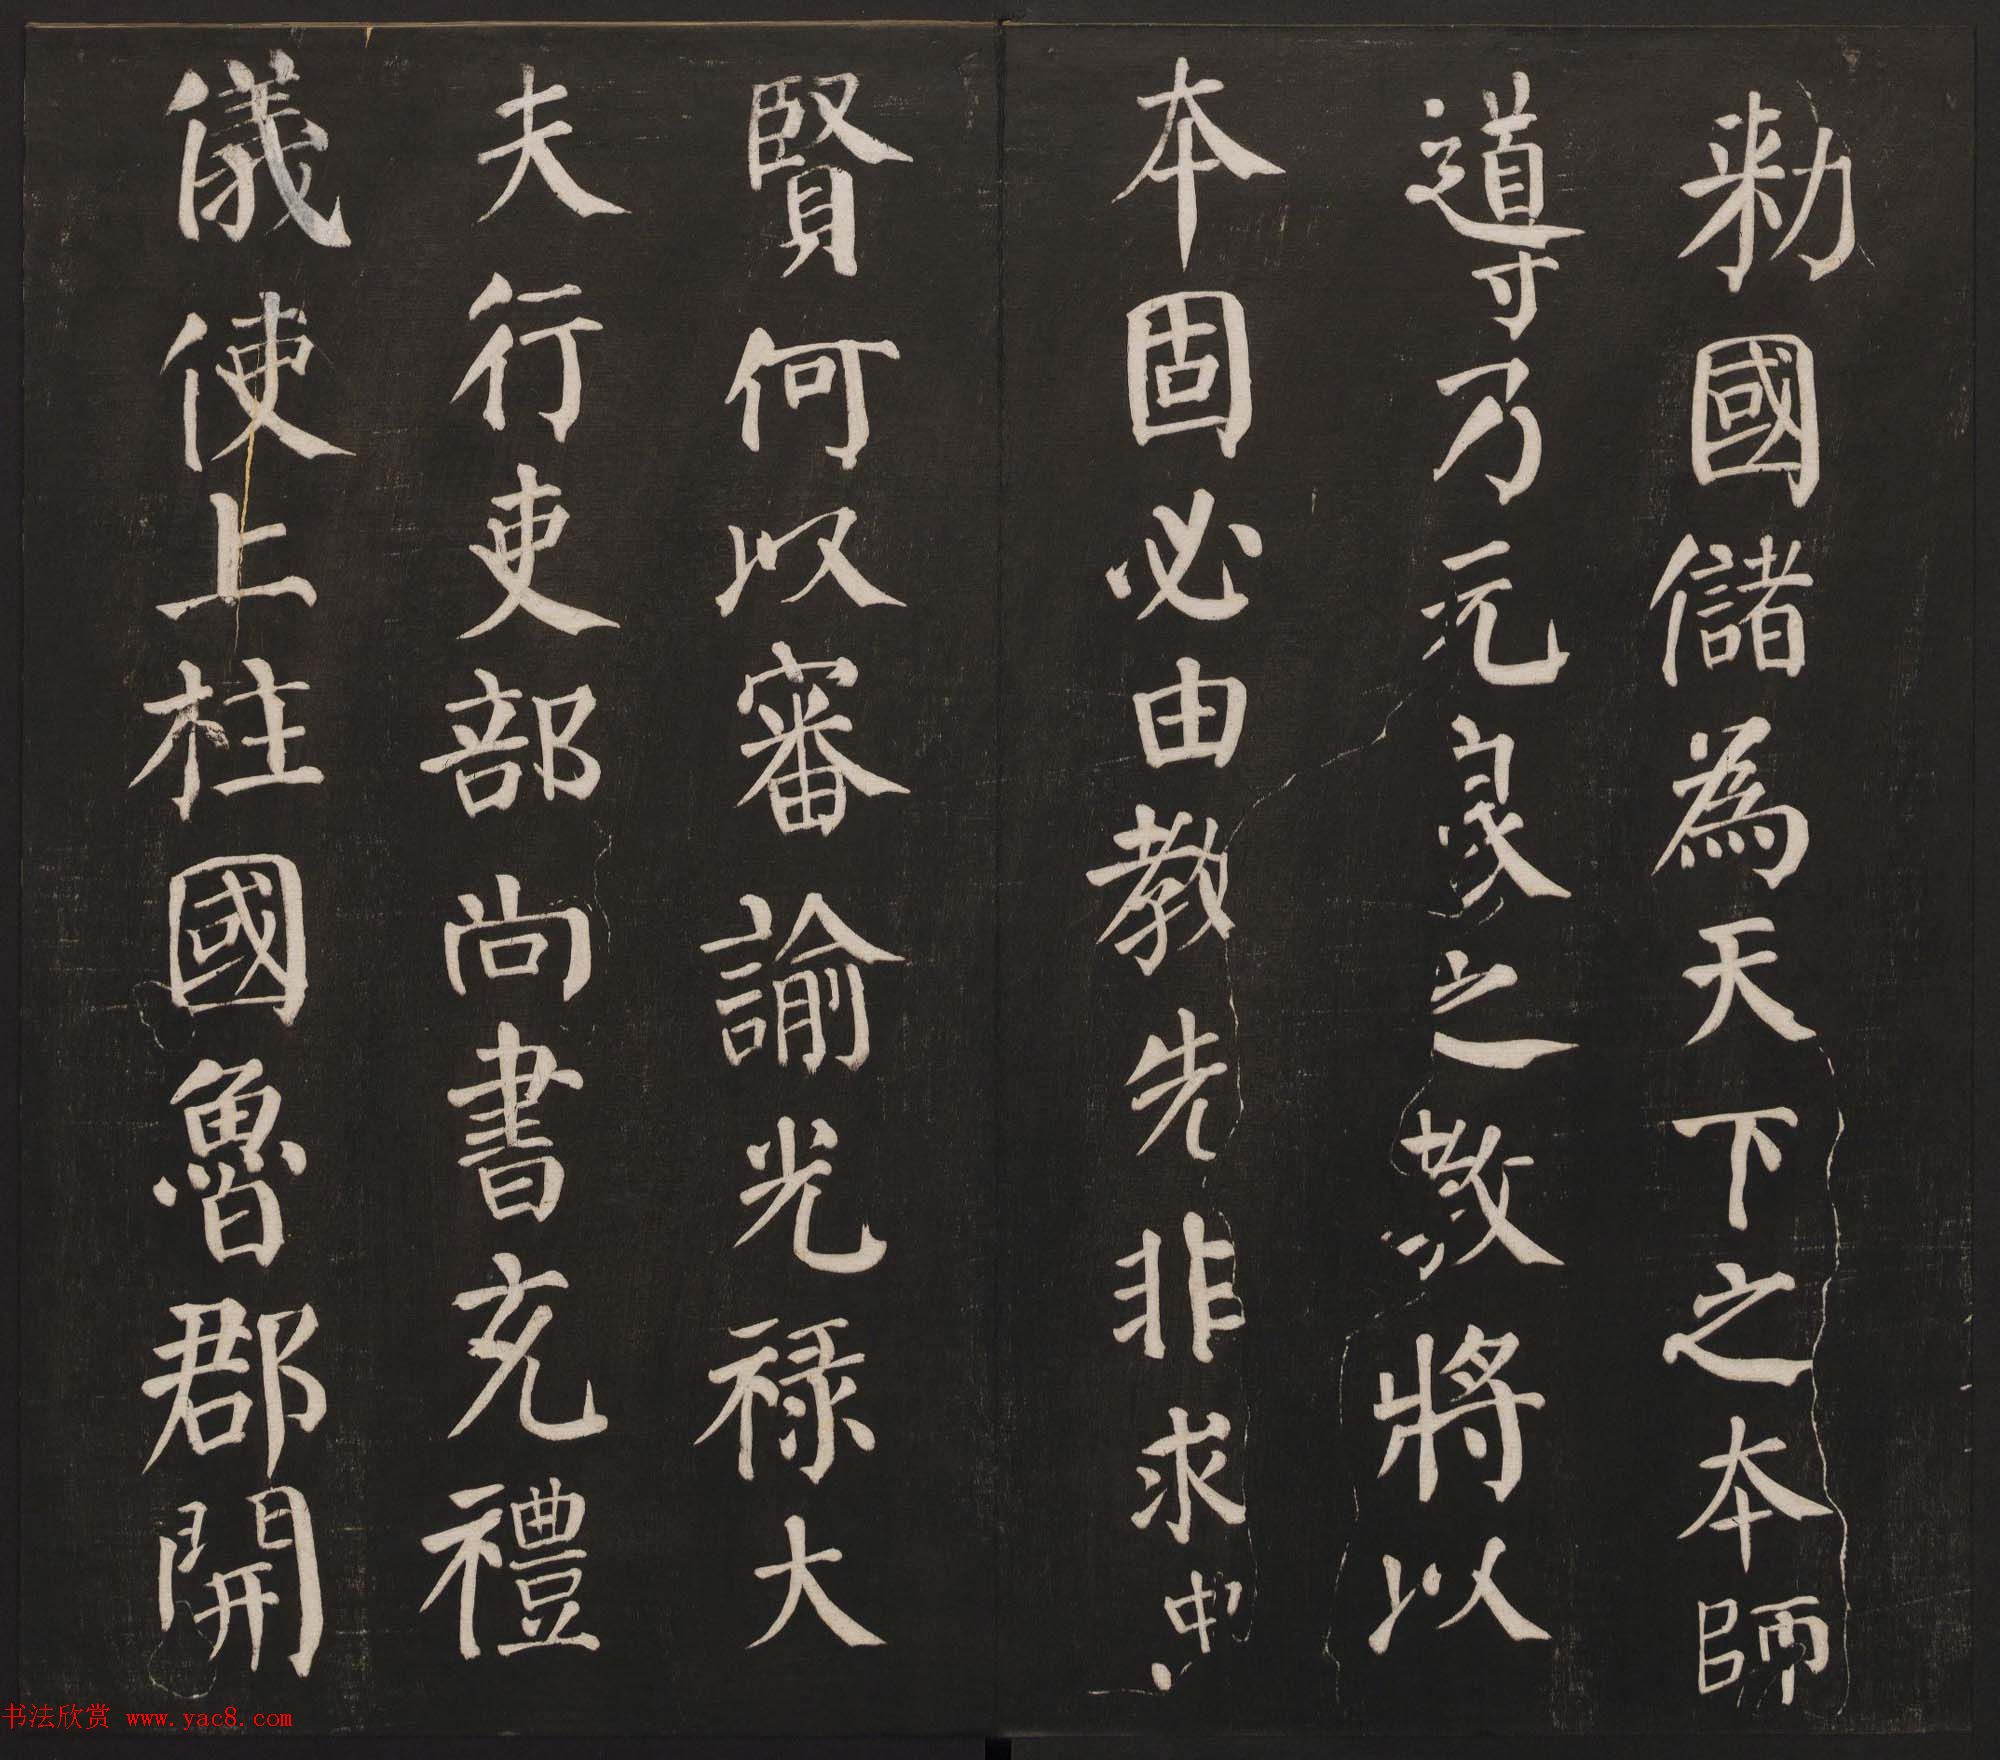 勑國儲為天下之本師
導乃元良之教將以
本固必由教先非求中
賢何以審諭光禄大
夫行吏部尚書充禮
儀使上柱國魯郡開
书法欣赏 www.yac8.com